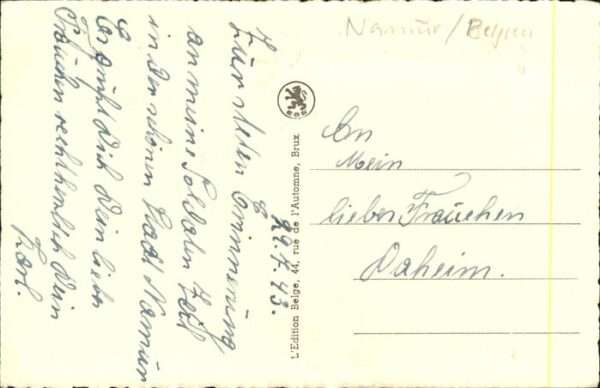 Namur / Belgien
Zur steten Erinnerung
an meine Soldaten Zeit
in der schönen Stadt Namur
Es grüßt Dich Dein lieber
recht herzlich Dein
Karl.
29.7.43.
L'Edition Belge, 44, rue de l'Automne, Brux
An
Mein
liebes Frauchen
Daheim.